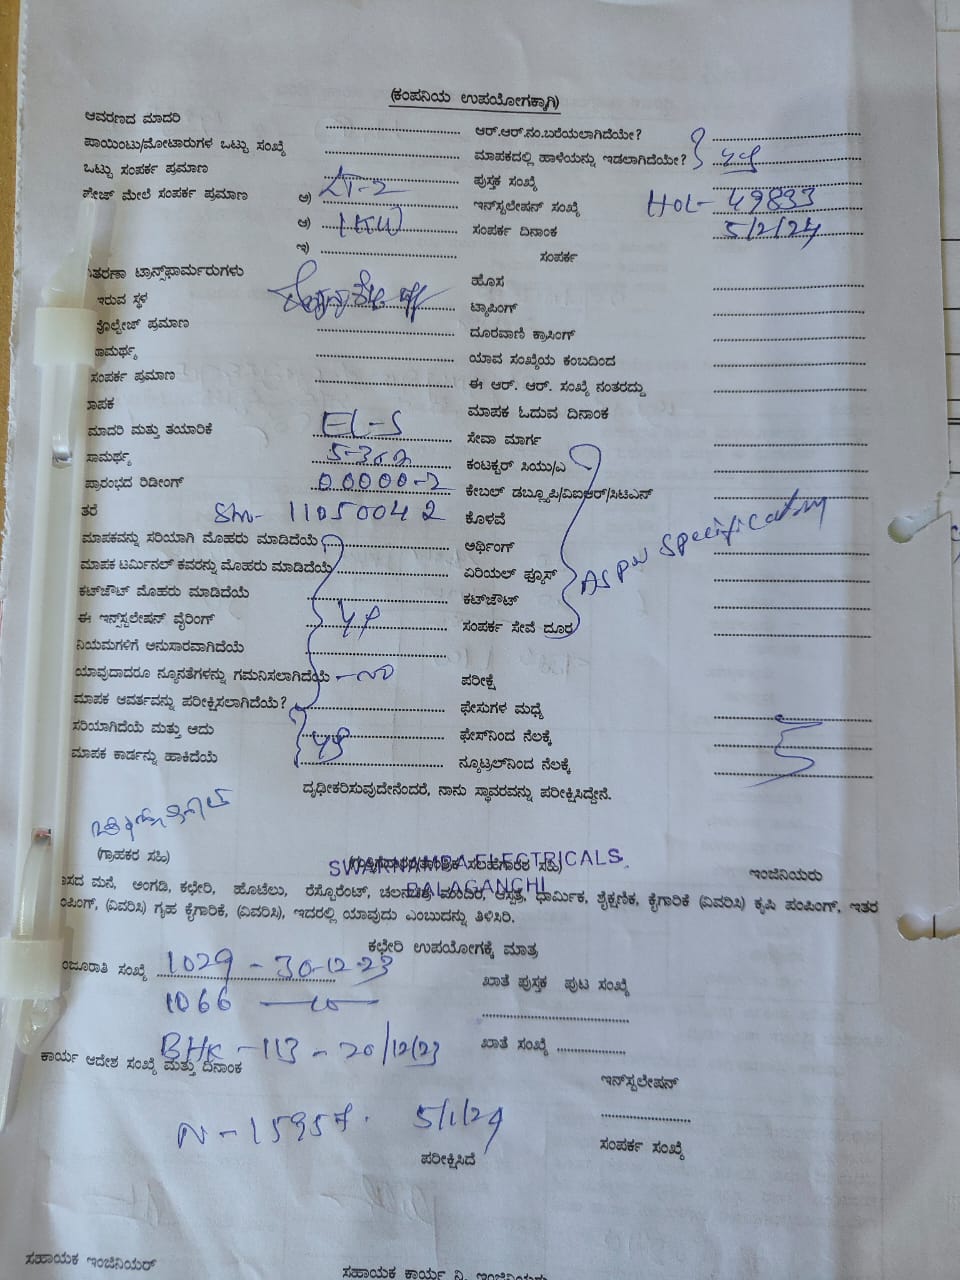 (ಕಂಪನಿಯ ಉಪಯೋಗಕ್ಕಾಗಿ)
ಆವರಣದ ಮಾದರಿ
ಆರ್.ಆರ್.ನಂ.ಬರೆಯಲಾಗಿದೆಯೇ?
ಪಾಯಿಂಟು/ಮೋಟಾರುಗಳ ಒಟ್ಟು ಸಂಖ್ಯೆ
ಮಾಪಕದಲ್ಲಿ ಹಾಳೆಯನ್ನು ಇಡಲಾಗಿದೆಯೇ?
ಒಟ್ಟು ಸಂಪರ್ಕ ಪ್ರಮಾಣ
ಪುಸ್ತಕ ಸಂಖ್ಯೆ
ಫೇಜ್ ಮೇಲೆ ಸಂಪರ್ಕ ಪ್ರಮಾಣ
ಅ) LT-2
ಇನ್‌ಸ್ಟಲೇಷನ್ ಸಂಖ್ಯೆ HOL- 49833
ಆ) 1KW
ಸಂಪರ್ಕ ದಿನಾಂಕ 5/2/24
ಇ)
ಸಂಪರ್ಕ
ವಿತರಣಾ ಟ್ರಾನ್ಸ್‌ಫಾರ್ಮರುಗಳು
ಹೊಸ
ಇರುವ ಸ್ಥಳ
ಟ್ಯಾಪಿಂಗ್
ವೋಲ್ಟೇಜ್ ಪ್ರಮಾಣ
ದೂರವಾಣಿ ಕ್ರಾಸಿಂಗ್
ಸಾಮರ್ಥ್ಯ
ಯಾವ ಸಂಖ್ಯೆಯ ಕಂಬದಿಂದ
ಸಂಪರ್ಕ ಪ್ರಮಾಣ
ಈ ಆರ್. ಆರ್. ಸಂಖ್ಯೆ ನಂತರದ್ದು
ಮಾಪಕ
ಮಾಪಕ ಓದುವ ದಿನಾಂಕ
ಮಾದರಿ ಮತ್ತು ತಯಾರಿಕೆ EL-S
ಸೇವಾ ಮಾರ್ಗ
ಸಾಮರ್ಥ್ಯ 5-30A
ಕಂಟಕ್ಟರ್ ಸಿಯು/ಎ
ಪ್ರಾರಂಭದ ರಿಡೀಂಗ್ 00000-2
ಕೇಬಲ್ ಡಬ್ಲ್ಯೂಪಿ/ವಿಐಆರ್/ಸಿಟಿಎಸ್
ತರೆ SM- 11050042
ಕೊಳವೆ
ಮಾಪಕವನ್ನು ಸರಿಯಾಗಿ ಮೊಹರು ಮಾಡಿದೆಯೆ
ಅರ್ಥಿಂಗ್
As per specification
ಮಾಪಕ ಟರ್ಮಿನಲ್ ಕವರನ್ನು ಮೊಹರು ಮಾಡಿದೆಯೆ
ಏರಿಯಲ್ ಫ್ಯೂಸ್
ಕಟ್‌ಔಟ್ ಮೊಹರು ಮಾಡಿದೆಯೆ
ಕಟ್‌ಔಟ್
ಈ ಇನ್‌ಸ್ಟಲೇಷನ್ ವೈರಿಂಗ್
ಸಂಪರ್ಕ ಸೇವೆ ದೂರ
ನಿಯಮಗಳಿಗೆ ಅನುಸಾರವಾಗಿದೆಯೆ
ಯಾವುದಾದರೂ ನ್ಯೂನತೆಗಳನ್ನು ಗಮನಿಸಲಾಗಿದೆಯೆ - no
ಪರೀಕ್ಷೆ
ಮಾಪಕ ಆವರ್ತವನ್ನು ಪರೀಕ್ಷಿಸಲಾಗಿದೆಯೆ?
ಫೇಸುಗಳ ಮಧ್ಯೆ
ಸರಿಯಾಗಿದೆಯೆ ಮತ್ತು ಅದು
ಫೇಸ್‌ನಿಂದ ನೆಲಕ್ಕೆ
ಮಾಪಕ ಕಾರ್ಡನ್ನು ಹಾಕಿದೆಯೆ
ನ್ಯೂಟ್ರಲ್‌ನಿಂದ ನೆಲಕ್ಕೆ
ದೃಢೀಕರಿಸುವುದೇನೆಂದರೆ, ನಾನು ಸ್ಥಾವರವನ್ನು ಪರೀಕ್ಷಿಸಿದ್ದೇನೆ.
(ಗ್ರಾಹಕರ ಸಹಿ)
SWARNAMBA ELECTRICALS.
BALAGANCHI
ಇಂಜಿನಿಯರು
ವಾಸದ ಮನೆ, ಅಂಗಡಿ, ಕಛೇರಿ, ಹೊಟೆಲು, ರೆಸ್ಟೊರೆಂಟ್, ಚಲನಚಿತ್ರ ಮಂದಿರ, ಆಸ್ಪತ್ರೆ, ಧಾರ್ಮಿಕ, ಶೈಕ್ಷಣಿಕ, ಕೈಗಾರಿಕೆ (ವಿವರಿಸಿ) ಕೃಷಿ ಪಂಪಿಂಗ್, ಇತರ
ಪಂಪಿಂಗ್, (ವಿವರಿಸಿ) ಗೃಹ ಕೈಗಾರಿಕೆ, (ವಿವರಿಸಿ), ಇದರಲ್ಲಿ ಯಾವುದು ಎಂಬುದನ್ನು ತಿಳಿಸಿರಿ.
ಕಛೇರಿ ಉಪಯೋಗಕ್ಕೆ ಮಾತ್ರ
ಮಂಜೂರಾತಿ ಸಂಖ್ಯೆ 1029 - 30-12-23
ಖಾತೆ ಪುಸ್ತಕ ಪುಟ ಸಂಖ್ಯೆ
1066
BHK - 113 - 20/12/23
ಖಾತೆ ಸಂಖ್ಯೆ
ಕಾರ್ಯ ಆದೇಶ ಸಂಖ್ಯೆ ಮತ್ತು ದಿನಾಂಕ
ಇನ್‌ಸ್ಟಲೇಷನ್
N - 15957. 5/1/24
ಸಂಪರ್ಕ ಸಂಖ್ಯೆ
ಪರೀಕ್ಷಿಸಿದೆ
ಸಹಾಯಕ ಇಂಜಿನಿಯರ್
ಸಹಾಯಕ ಕಾರ್ಯ ನಿ. ಇಂಜಿನಿಯರು